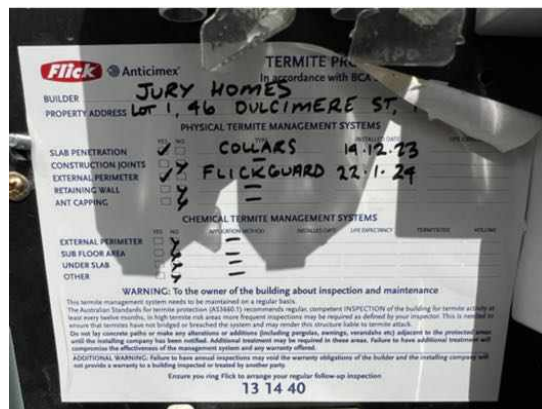 Flick Anticimex
TERMITE
In accordance with BCA
BUILDER JURY HOMES
PROPERTY ADDRESS LOT 1, 46 DULCIMERE ST,
PHYSICAL TERMITE MANAGEMENT SYSTEMS
YES NO TYPE INSTALLED DATE
SLAB PENETRATION COLLARS 19.12.23
CONSTRUCTION JOINTS =
EXTERNAL PERIMETER FLICKGUARD 22.1.24
RETAINING WALL =
ANT CAPPING =
CHEMICAL TERMITE MANAGEMENT SYSTEMS
YES NO APPLICATION METHOD INSTALLED DATE LIFE EXPECTANCY TERMITICIDE VOLUME
EXTERNAL PERIMETER =
SUB FLOOR AREA =
UNDER SLAB =
OTHER =
WARNING: To the owner of the building about inspection and maintenance
This termite management system needs to be maintained on a regular basis.
The Australian Standards for termite protection (AS3660.1) recommends regular, competent INSPECTION of the building for termite activity at
least every twelve months, in high termite risk areas more frequent inspections may be required as defined by your inspector. This is needed to
ensure that termites have not bridged or breached the system and may render this structure liable to termite attack.
Do not lay concrete paths or make any alterations or additions (including pergolas, awnings, verandahs etc) adjacent to the protected areas
until the installing company has been notified. Additional treatment may be required in these areas. Failure to have additional treatment will
compromise the effectiveness of the management system and any warranty offered.
ADDITIONAL WARNING: Failure to have annual inspections may void the warranty obligations of the builder and the installing company will
not provide a warranty to a building inspected or treated by another party.
Ensure you ring Flick to arrange your regular follow-up inspection
13 14 40